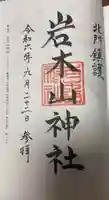 北門鎮護
岩木山神社
令和六年九月二十二日 参拝